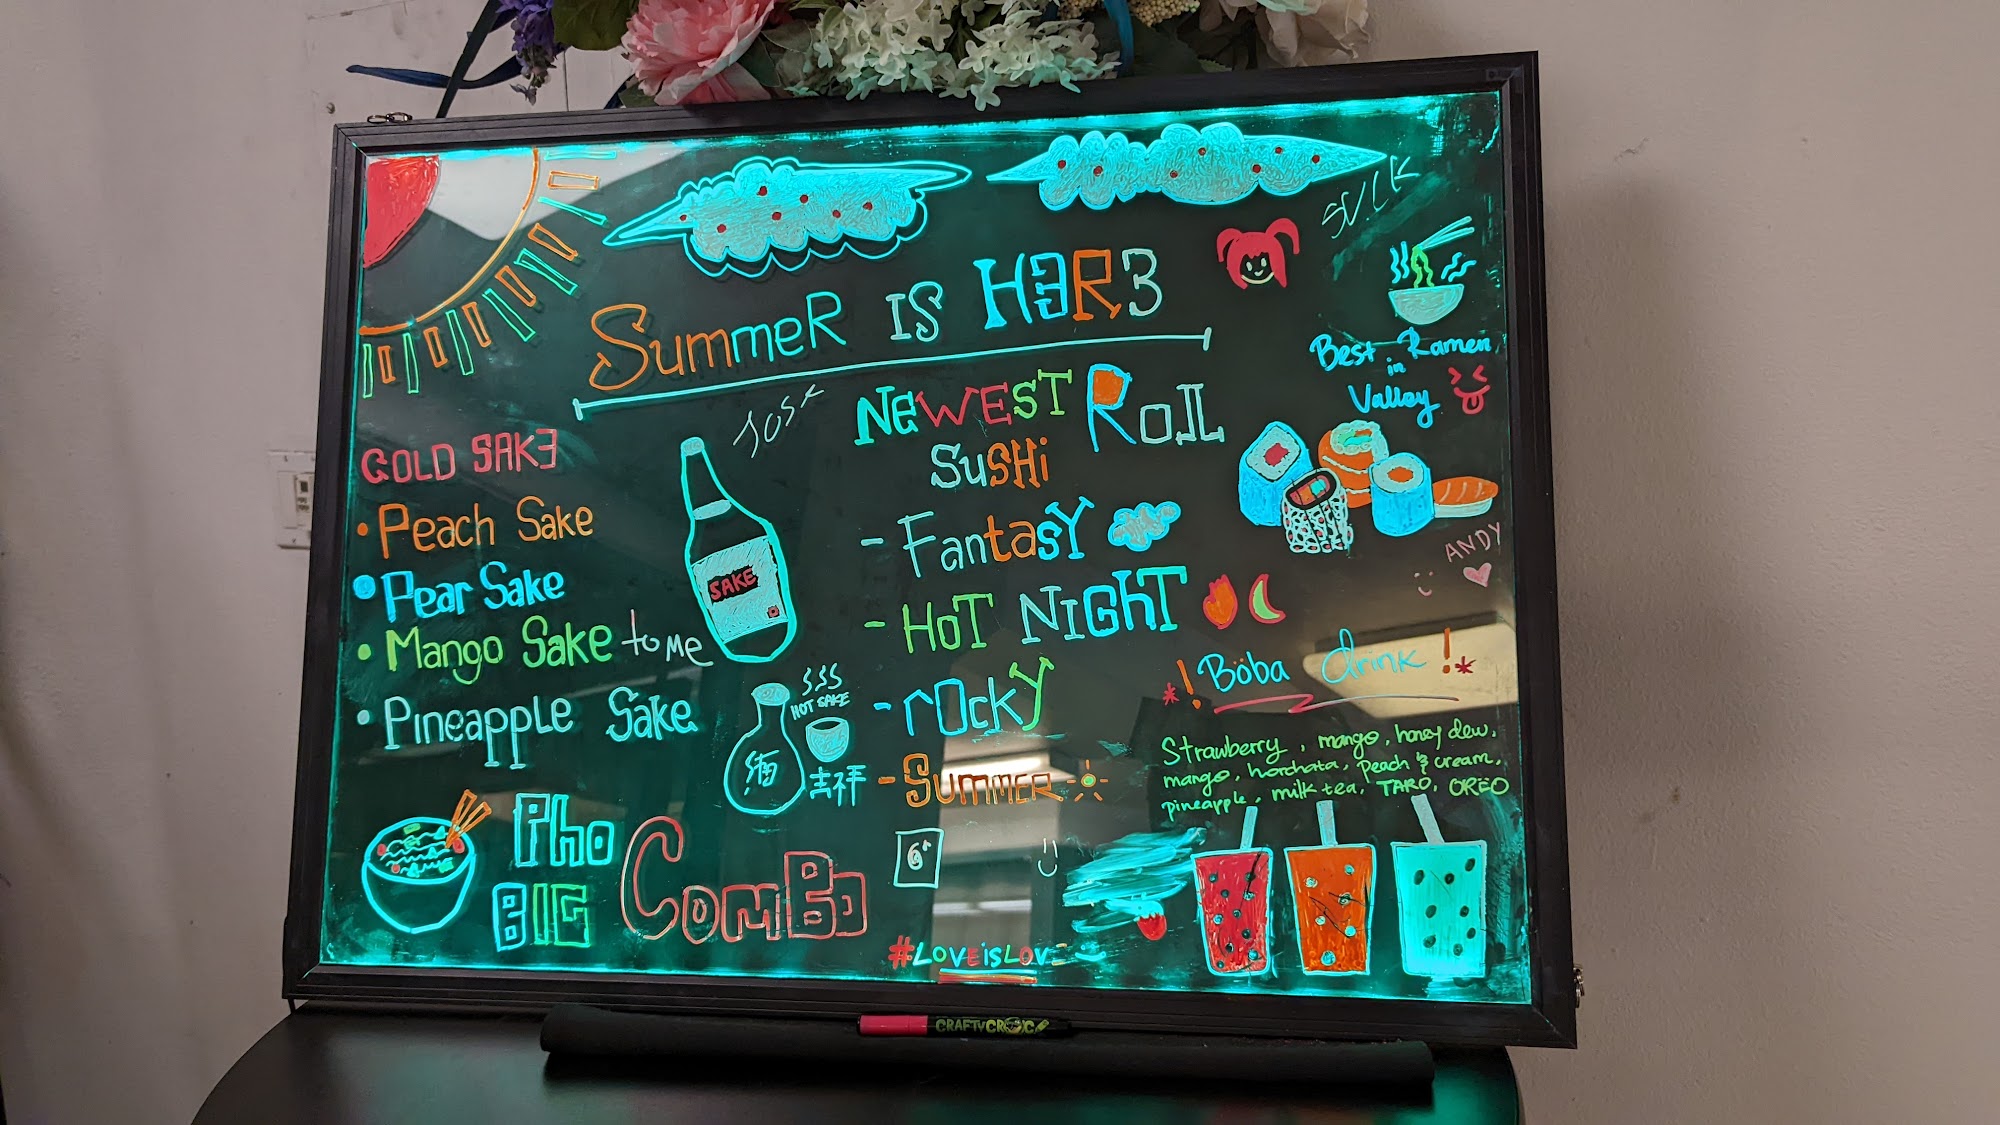 SUCK
SummeR IS H3R3
Best Ramen
in
Valley
NEWEST ROLL
SuSHi
COLD SAK3
• Peach Sake
• Pear Sake
• Mango Sake to me
• Pineapple Sake
SAKE
HOT SAKE
吉祥
- FantasY
- HOT NIGhT
- rOcky
- SUMMER
ANDY
! Böba drink !
Strawberry, mango, honey dew,
mango, horchata, Peach & cream,
pineapple, milk tea, TARO, OREO
Pho
BIG ComBo
6
#LOVEisLOVE
CRAFTYCROC